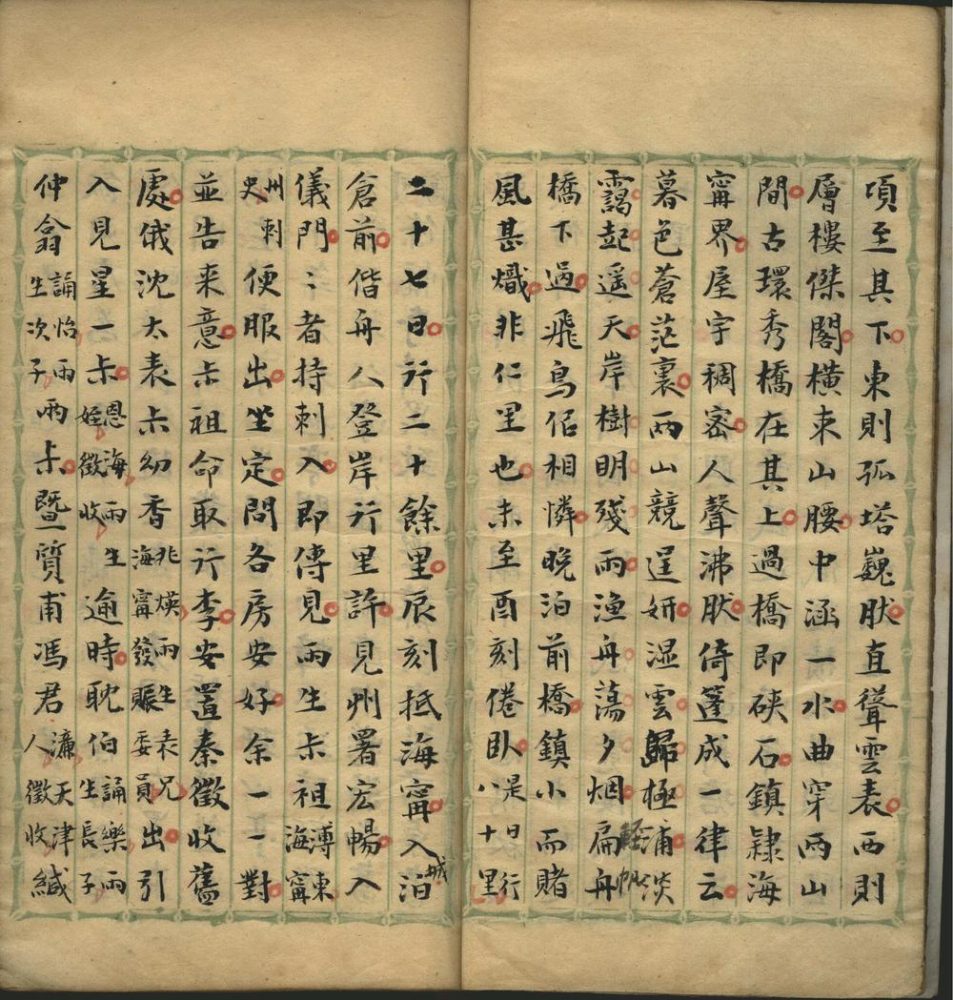 項至其下東則孤塔巍肰直聳雲表西則
層樓傑閣橫束山腰中涵一水曲穿兩山
間古環秀橋在其上過橋即硤石鎮隸海
甯界屋宇稠密人聲沸肰倚篷成一律云
暮色蒼茫裏兩山競逞妍湿雲歸極浦淡
靄起遥天岸樹明殘雨漁舟蕩夕烟扁舟輕帆
橋下過飛鳥侣相憐晚泊前橋鎮小而賭
風甚熾非仁里也未至酉刻倦卧是日行八十里
二十七日行二十餘里辰刻抵海甯入城泊
倉前偕舟人登岸行里許見州署宏暢入
儀門〻者持刺入即傳見雨生尗祖溥東海甯
州刺史便服出坐定問各房安好余一一對
並告来意尗祖命取行李安置秦徵收舊
處俄沈太表尗幼香兆煐雨生表兄海甯發賑委員出引
入見星一尗恩海雨生姪徵收逾時耽伯誦樂雨生長子
仲翕誦怡雨生次子兩尗暨質甫馮君濂天津人徵收緘